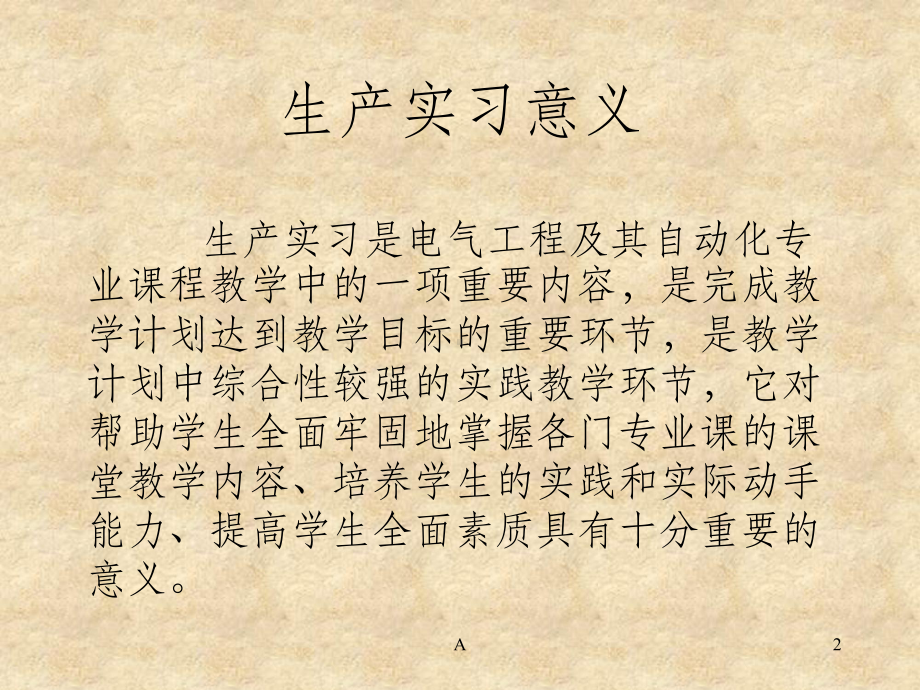 生产实习意义
生产实习是电气工程及其自动化专
业课程教学中的一项重要内容，是完成教
学计划达到教学目标的重要环节，是教学
计划中综合性较强的实践教学环节，它对
帮助学生全面牢固地掌握各门专业课的课
堂教学内容、培养学生的实践和实际动手
能力、提高学生全面素质具有十分重要的
意义。
A
2